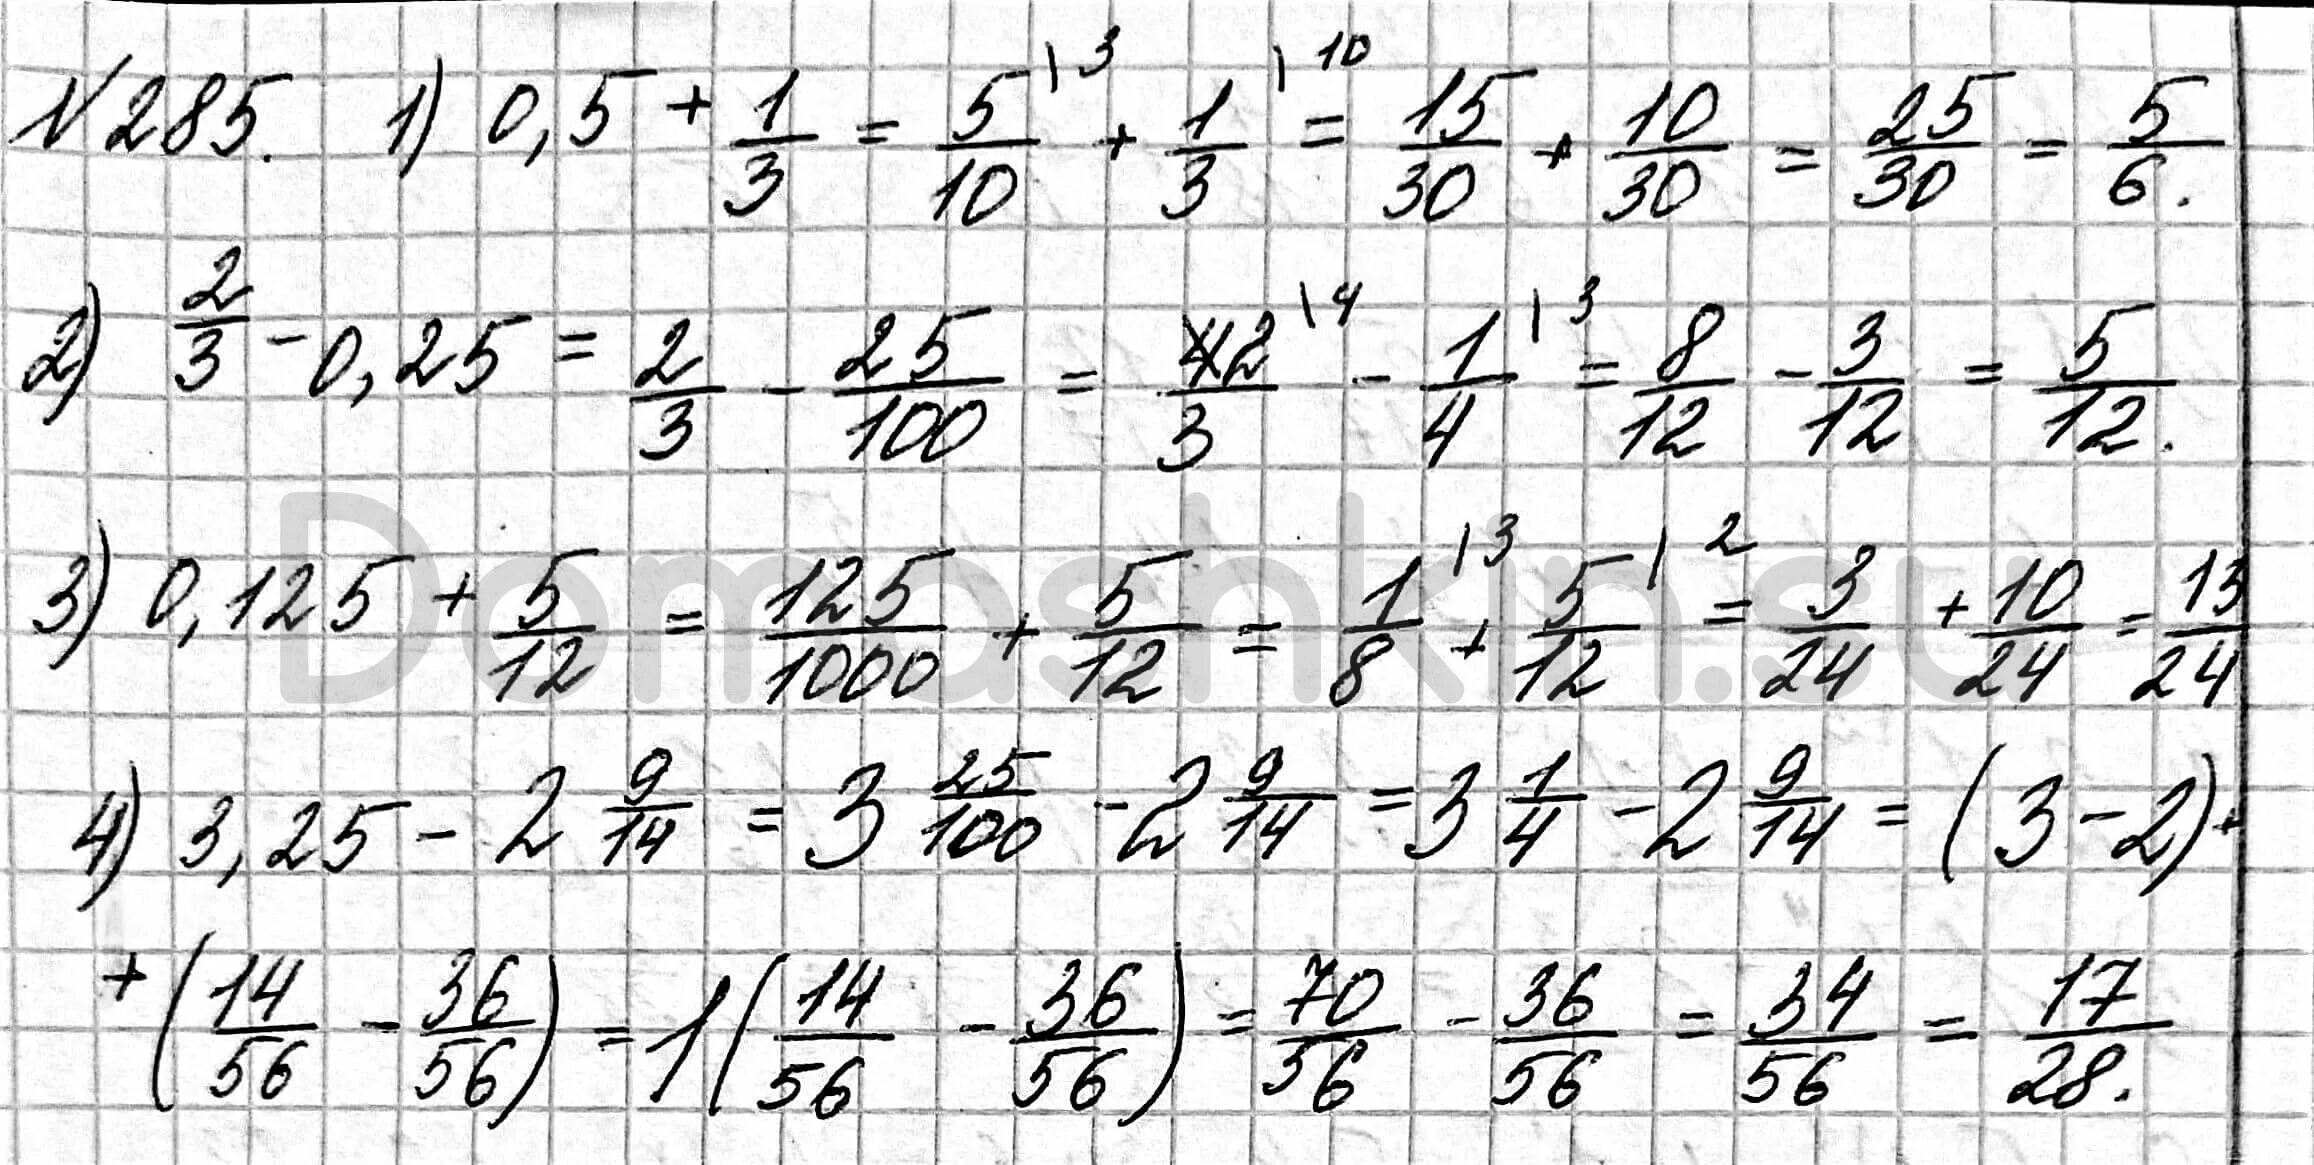 №285. 1) 0,5 + 1/3 = 5/10 \3 + 1/3 \10 = 15/30 + 10/30 = 25/30 = 5/6.
2) 2/3 - 0,25 = 2/3 - 25/100 = 2/3 \4 - 1/4 \3 = 8/12 - 3/12 = 5/12.
3) 0,125 + 5/12 = 125/1000 + 5/12 = 1/8 \3 + 5/12 \2 = 3/24 + 10/24 = 13/24
4) 3,25 - 2 9/14 = 3 25/100 - 2 9/14 = 3 1/4 - 2 9/14 = (3 - 2) +
+ (14/56 - 36/56) = 1 (14/56 - 36/56) = 70/56 - 36/56 = 34/56 = 17/28.
Domashkin.su